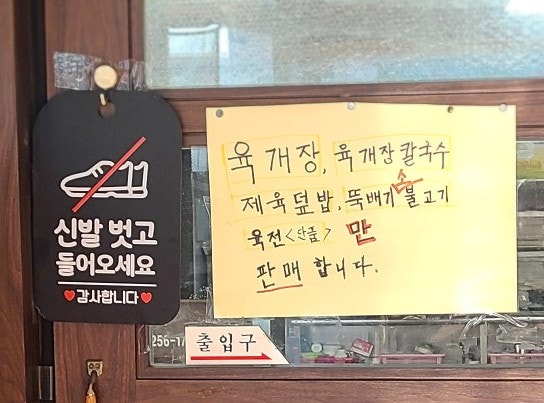 신발 벗고
들어오세요
♥감사합니다♥
육개장, 육개장 칼국수
제육덮밥, 뚝배기 소불고기
육전<단품> 만
판매 합니다.
출입구